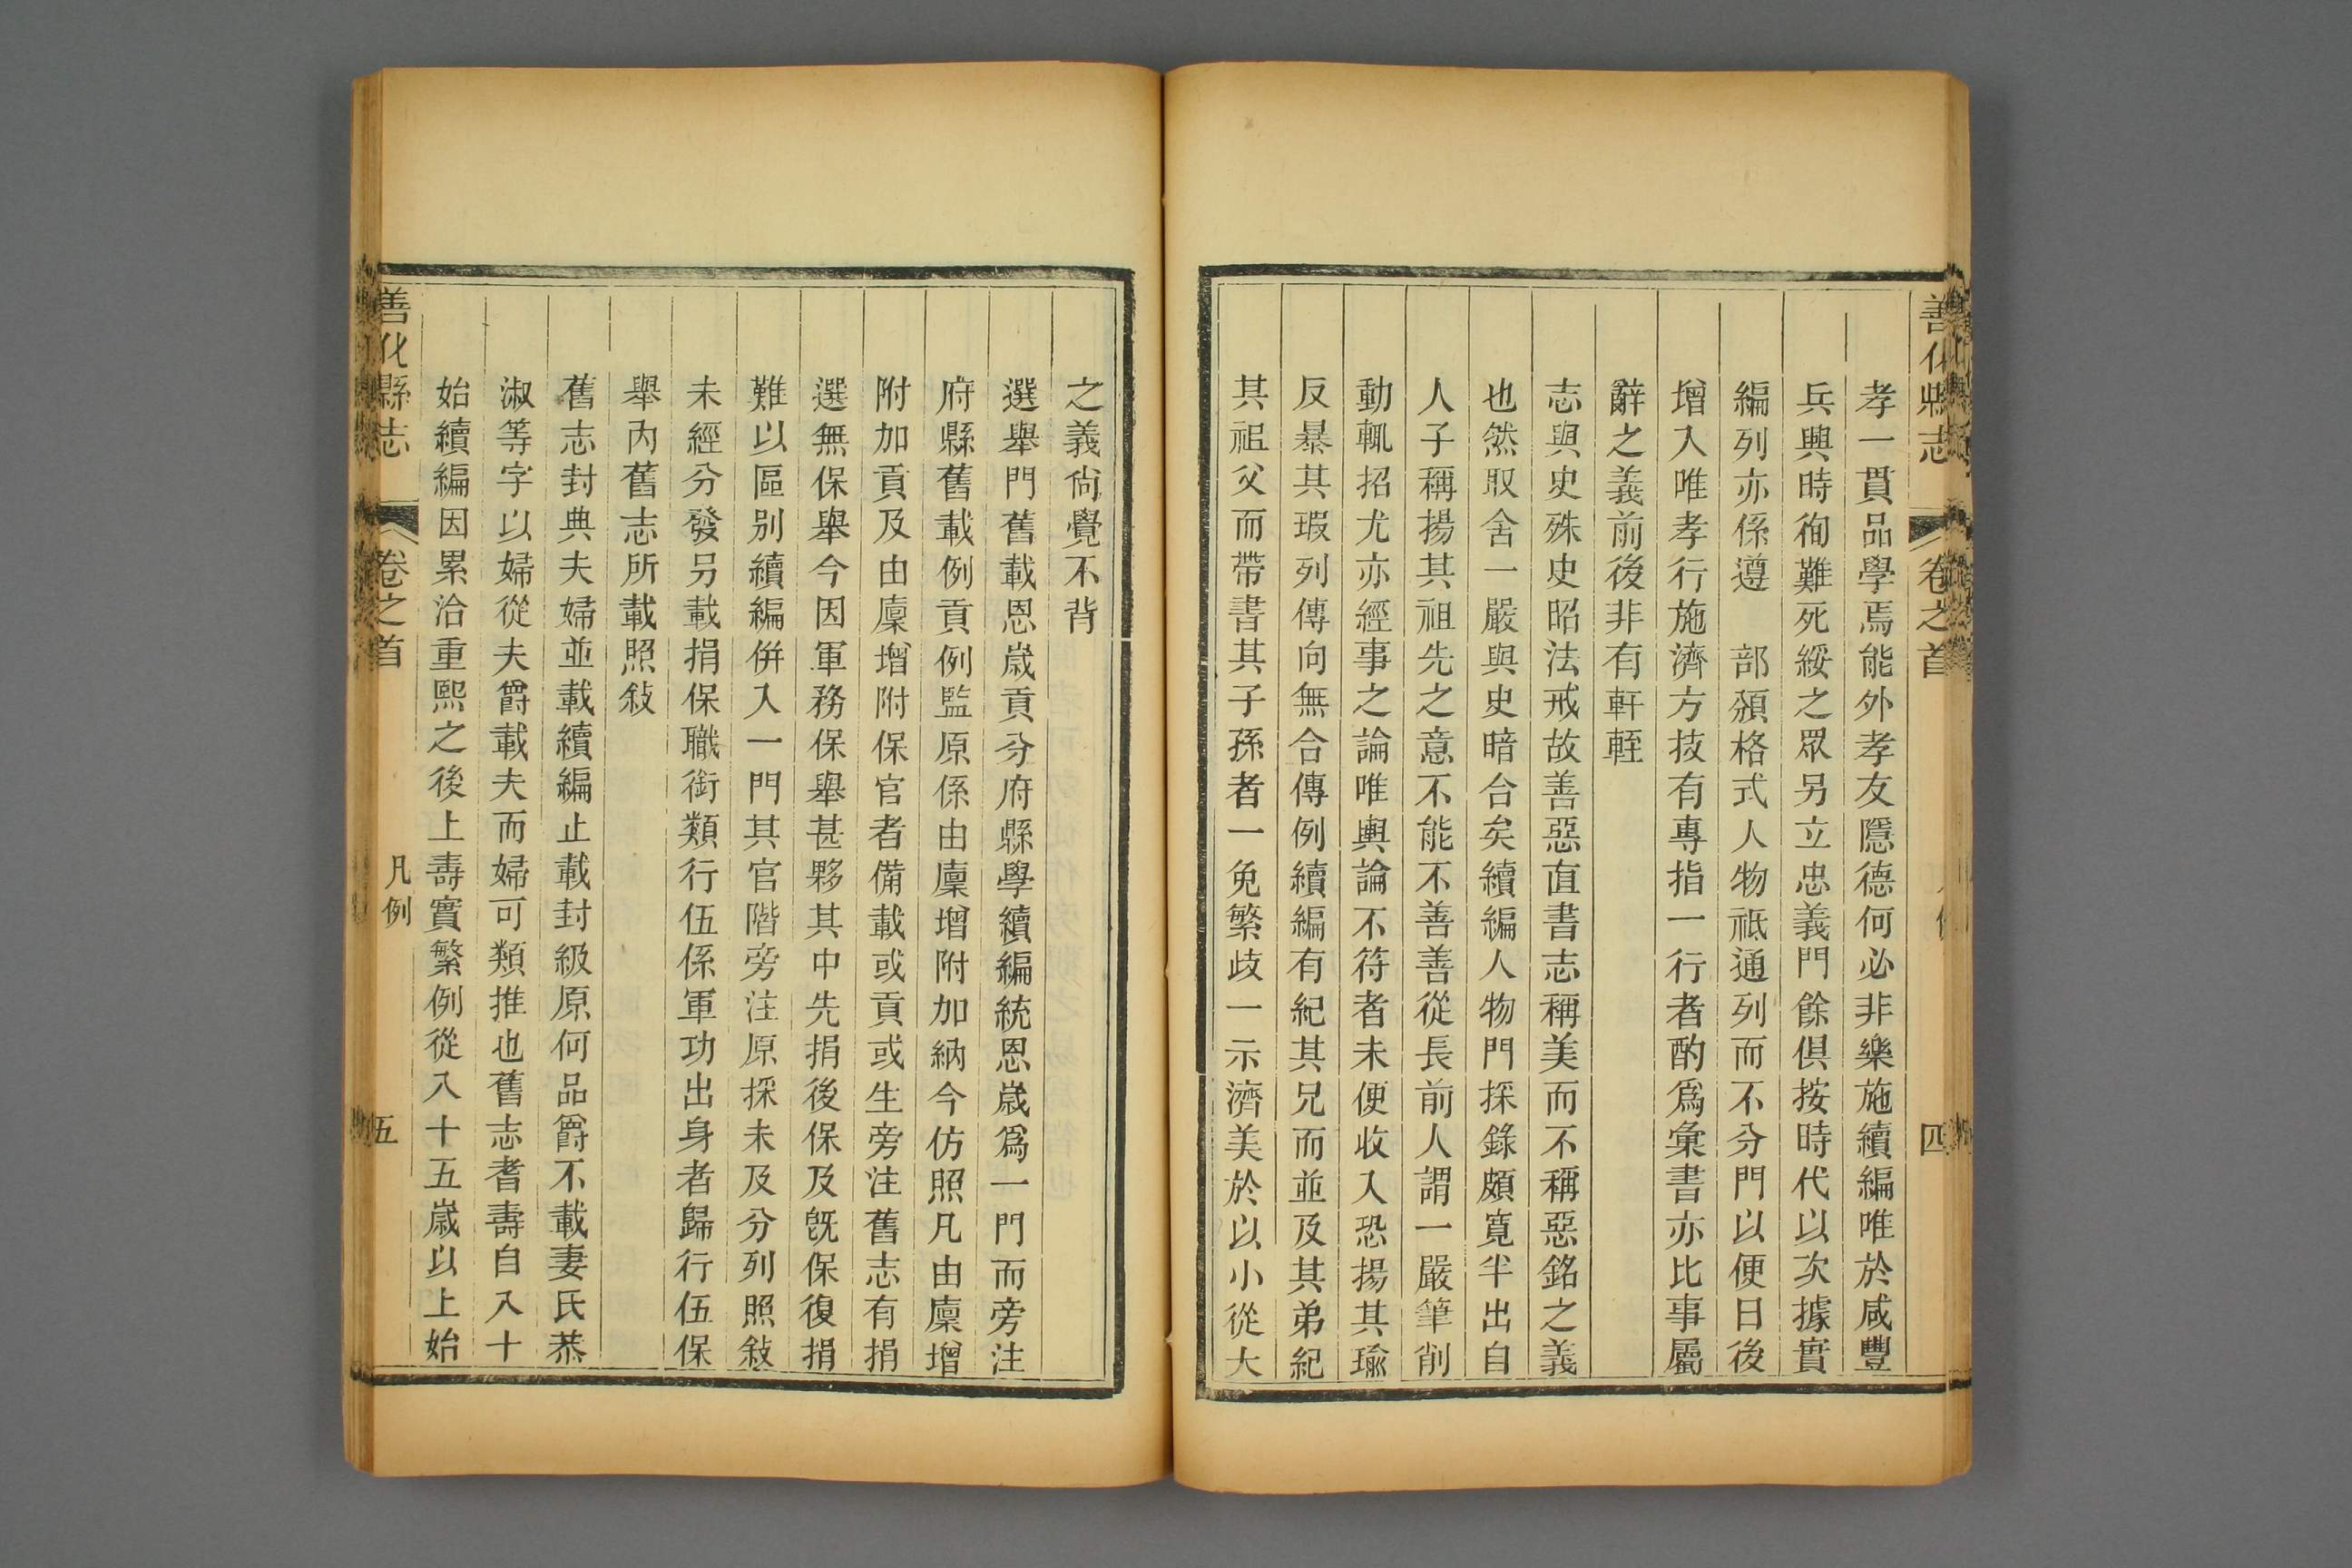 善化縣志 卷之首 四
孝一貫品學焉能外孝友隱德何必非樂施續編唯於咸豐
兵興時徇難死綏之眾另立忠義門餘俱按時代以次據實
編列亦係遵 部頒格式人物祗通列而不分門以便日後
增入唯孝行施濟方技有專指一行者酌爲彙書亦比事屬
辭之義前後非有軒輊
志與史殊史昭法戒故善惡直書志稱美而不稱惡銘之義
也然取舍一嚴與史暗合矣續編人物門採錄頗寬半出自
人子稱揚其祖先之意不能不善善從長前人謂一嚴筆削
動輒招尤亦經事之論唯輿論不符者未便收入恐揚其瑜
反暴其瑕列傳向無合傳例續編有紀其兄而並及其弟紀
其祖父而帶書其子孫者一免繁歧一示濟美於以小從大
之義尙覺不背
選舉門舊載恩歲貢分府縣學續編統恩歲爲一門而旁注
府縣舊載例貢例監原係由廩增附加納今仿照凡由廩增
附加貢及由廩增附保官者備載或貢或生旁注舊志有捐
選無保舉今因軍務保舉甚夥其中先捐後保及既保復捐
難以區別續編併入一門其官階旁注原採未及分列照敍
未經分發另載捐保職銜類行伍係軍功出身者歸行伍保
舉內舊志所載照敍
舊志封典夫婦並載續編止載封級原何品爵不載妻氏恭
淑等字以婦從夫爵載夫而婦可類推也舊志耆壽自入十
始續編因累洽重熙之後上壽實繁例從入十五歲以上始
善化縣志 卷之首 凡例 五